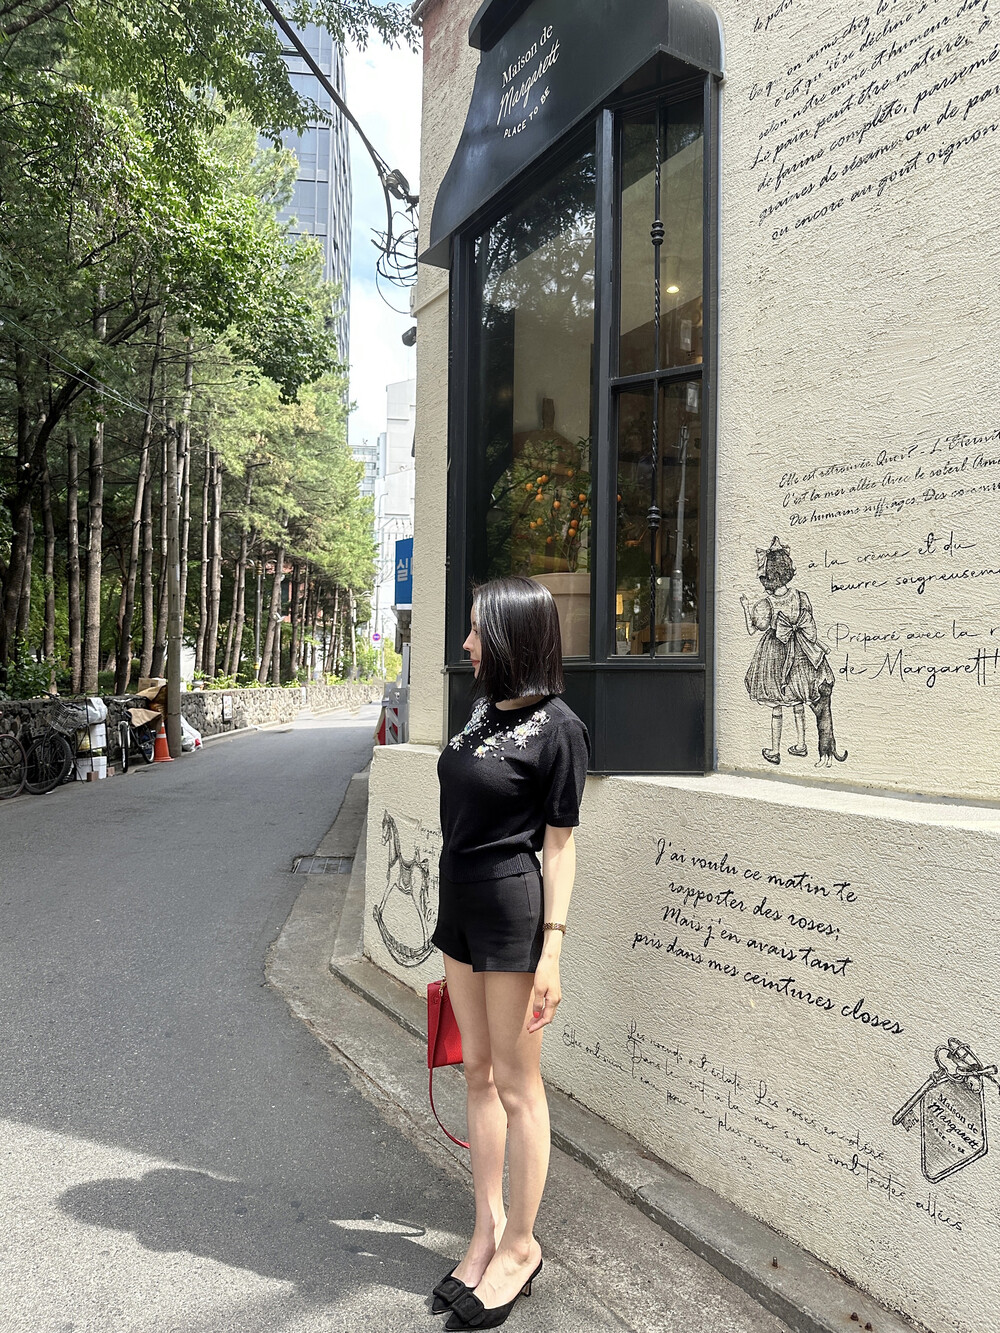 Maison de
Margarett
PLACE TO BE
le petit
Ce qu'on aime chez le
c'est qu'il se décline à
selon notre envie et humeur du
Le pain peut être nature, à
de farine complète, parsemé
graines de sésame ou de pa
ou encore au goût oignon
Elle est retrouvée. Quoi? - L'Eternit
C'est la mer allée Avec le soleil Ame
Des humains suffrages, Des commun
à la crème et du
beurre soigneuseme
Préparé avec la
de Margarett
실
J'ai voulu ce matin te
rapporter des roses;
Mais j'en avais tant
pris dans mes ceintures closes
Les noeuds ont éclaté. Les roses envolées
Dans le vent, à la mer s'en sont toutes allées
plus revenir
Maison de
Margarett
PLACE TO BE